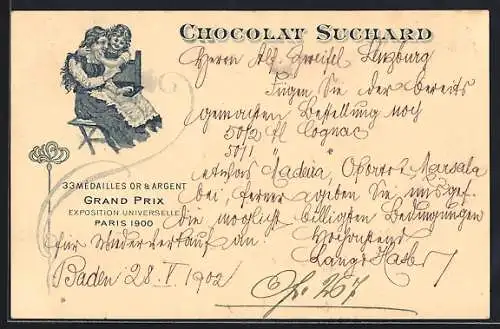 CHOCOLAT SUCHARD
Herrn Alf. Zweifel Lenzburg
Fügen Sie der bereits
gemachten Bestellung noch
50/2 fl Cognac
50/1 "
etwas Madeira, Oporto & Marsala
bei, ferner geben Sie uns gef.
die möglichst billigsten Bedingungen
für Wiederverkauf an.
Hochachtend
33 MÉDAILLES OR & ARGENT
GRAND PRIX
EXPOSITION UNIVERSELLE
PARIS 1900
Baden 28. V. 1902